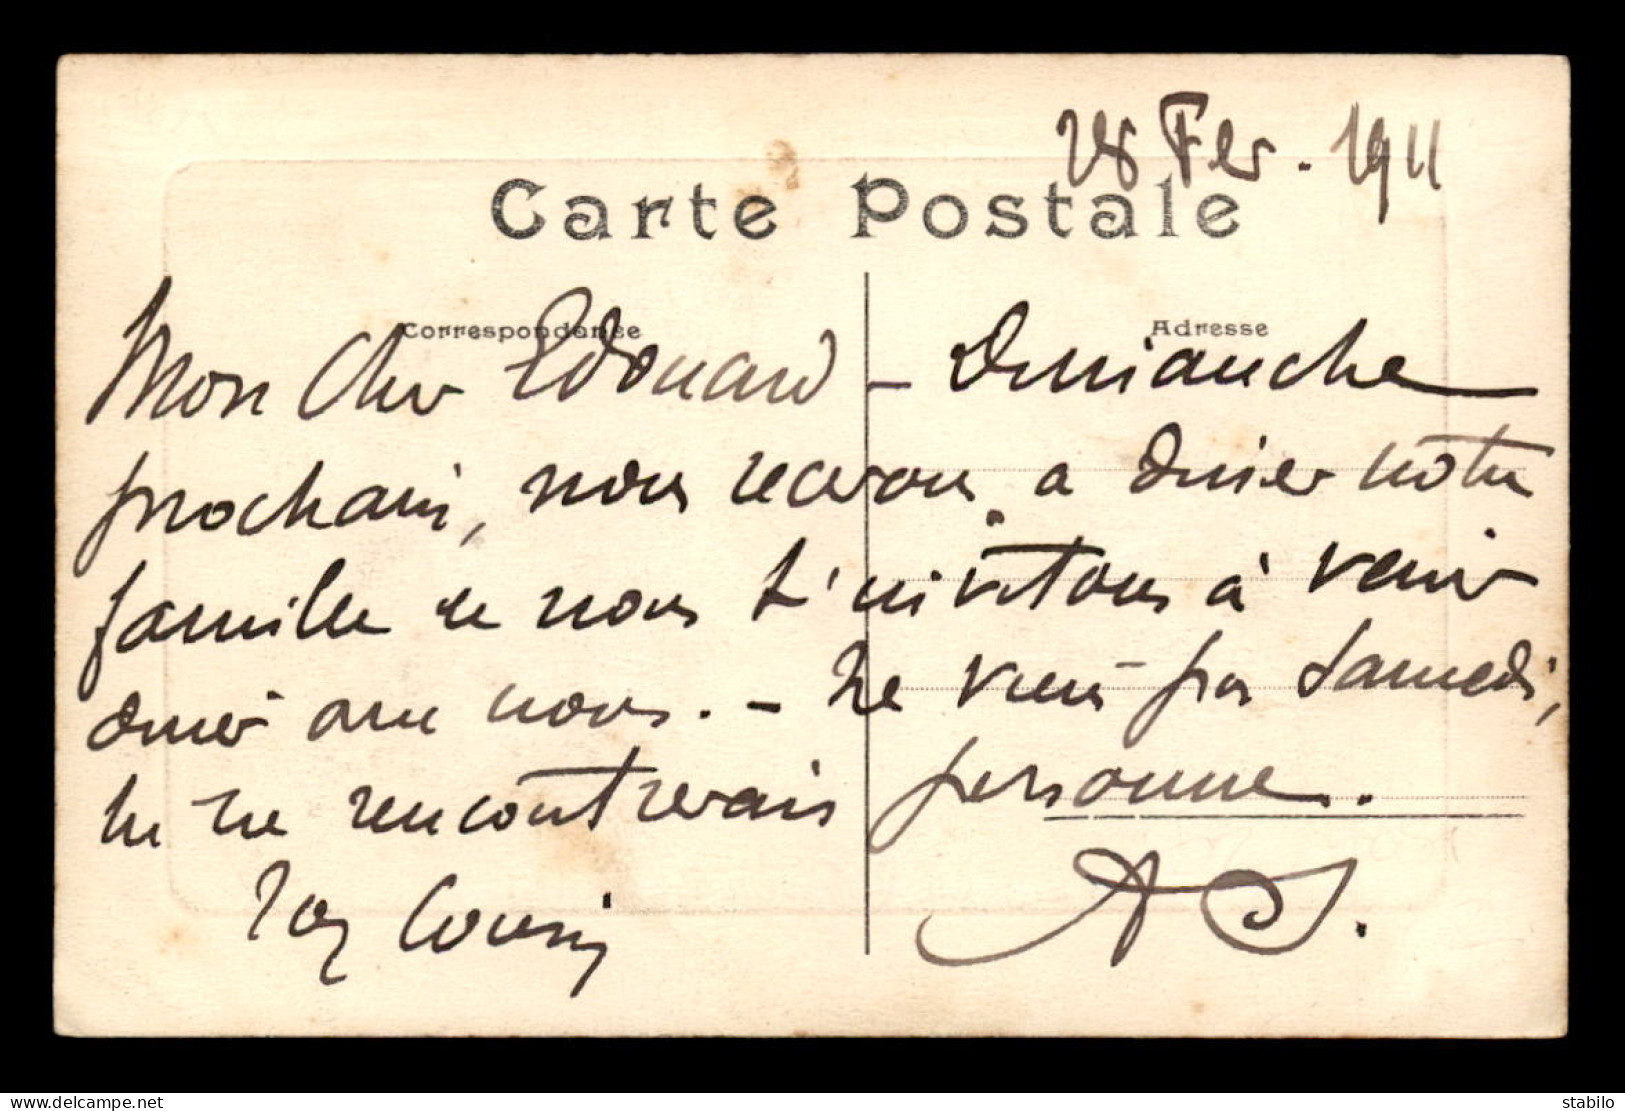 28 Fev. 1911
Carte Postale
Correspondance
Adresse
Mon Cher Edouard - Dimanche
prochain, nous recevons a diner notre
famille et nous t'invitons à venir
diner avec nous. - Ne viens pas Samedi,
tu ne rencontrerais personne.
Ton Cousin
AS.
www.delcampe.net
stabilo